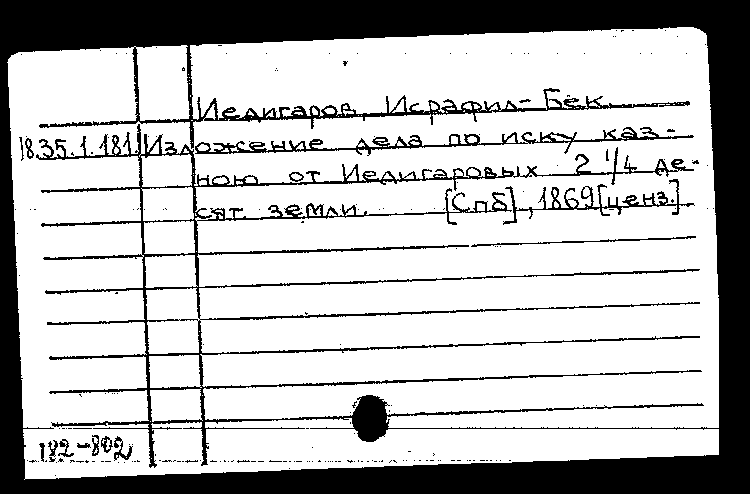 Иедигаров, Исрафил-Бек.
18.35.1.181. Изложение дела по иску каз-
ною от Иедигаровых 2 1/4 де-
сят. земли. [Спб], 1869 [ценз.].
182-802